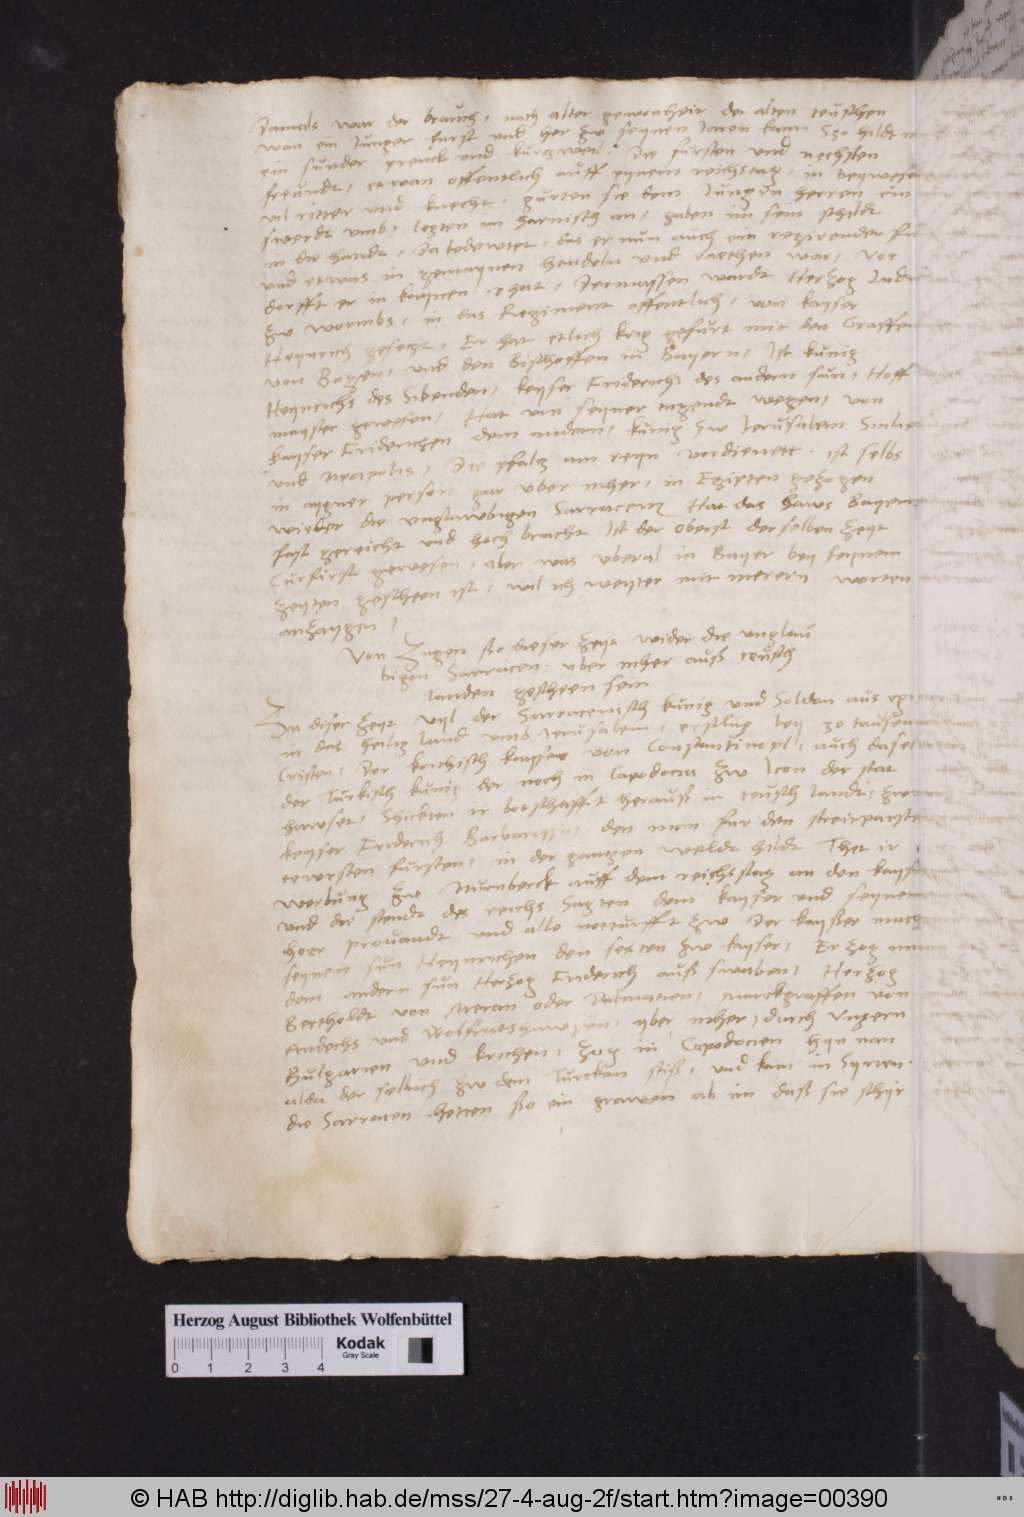 Damals war der brauch, nach alter gewonheit der alten teuschen
wan ein Junger furst und her zw seynen Jaren kam Szo hildt m
ein sunder prenck und kurczweil. Die fursten und nechsten
freundt, etwan offentlich auff eynem reichstag, in beywese
vil ritter und knecht, gurten sie dem Jungen herren ein
swerdt umb, legten im harnisch an, gaben im sein schildt
in die handt, Da bedewtet, das er nun auch ein regirender fu
und etwas in gemaynen hendeln und raethen war, vor
dorfft er in keynen that, Dermassen wardt Herzog Ludw
zw wormbs, in das Regiment offentlich, von kayser
Heynrich gesetzt, Er hat etlich krig gefurt mit den Graffen
von Bogen, und den Bischoffen in Bayern, Ist kunig
Heynrichs des Sibenden, keyser Friderichs des andern sun, Hoff
mayster gewesen, Hat von seyner tugendt wegen, von
kayser Friderichen dem andern, kunig zw Jerusalem Sicilie
und Neapolis, Die pfaltz am reyn verdienett. ist selbs
in aygner person gar uber mher, in Egipten gezogen
wider die unglawbigen Sarracen Hat das haws Bayern
fast gereicht und hoch bracht Ist der oberst derselben zeyt
Curfurst gewesen, aber was uberal in Bayer bey seynem
zeyten gescheen ist, wil ich weyter mit merern worten
anzaygen,
Von Zugen sso dieser zeyt wider die unglau
bigen Sarracen. uber mher auss teusch
landen gescheen sein
In diser zeyt vyl der Sarracenisch kunig und Soldan aus egi
in das heilig land umb Jerusalem, erslug bey 30 tausen
Cristen, Der krichisch kayser von Constantinopl, auch dasel
der Turkisch kunig der noch in Capodocia zw Icon der stat
hawset, Schickten ir botschafft herauss in teusch landt, zw
keyser Friderich Barbarossa, den man fur den streitpayste
tewrsten fursten, in der gantzen weldt hildt Thet ir
werbung zw Nurnberck auff dem reichsstag an den kayse
und die stendt des reichs Sagten dem kayser und seynem
hoer provandt und alle notturfft zw Der kaysser mach
seynem sun Heynrichen den sexten zw kayser, Er zog mi
dem andern sun Herzog Friderich auss swaben, Herzog
Bertholdt von Meran oder Dalmatien, marckgraffen von
Andechs und Wolfratshawsen, uber mher, durch Ungern
Bulgarien und krichen, zog in Capodocien hyn nan
alda der selbich zw dem Turcken stiss, und kam in Syrien.
die Sarraten hetten sso ein grawen ab im dass sie schyr
Herzog August Bibliothek Wolfenbüttel
0 1 2 3 4
Kodak
Gray Scale
© HAB http://diglib.hab.de/mss/27-4-aug-2f/start.htm?image=00390